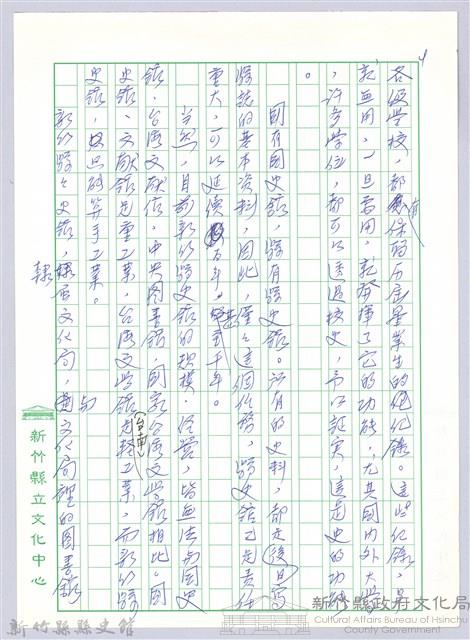 4
各級學校，都有保留歷屆畢業生的紀錄。這些紀錄，是
乾無用，一旦需用，就發揮了它的功能，尤其國內外大學
，許多學位，都可以透過校史，予以証實，這是史的功能
。
國有國史館，縣有縣史館。所有的史料，都是後日寫
縣誌的基本資料，因此，僅這個任務，縣史館已是責任
重大，可以延續百年，甚或千年。
當然，目前新竹縣史館的規模、經營，皆無法與國史
館、台灣文獻館、中央圖書館、國家台灣文學館相比。國
史館、文獻館是重工業，台灣文學館(台南)是輕工業，而新竹縣
史館，只是磚窯手工業。
新竹縣縣史館，隸屬文化局，與文化局裡的圖書館
隸
新竹縣立文化中心
新竹縣縣史館
新竹縣政府文化局
Cultural Affairs Bureau of Hsinchu
County Government